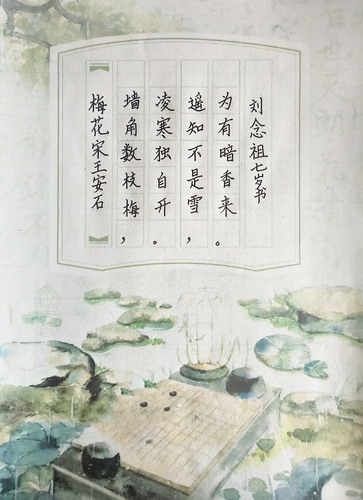 梅花宋王安石
墙角数枝梅，
凌寒独自开。
遥知不是雪，
为有暗香来。
刘念祖七岁书